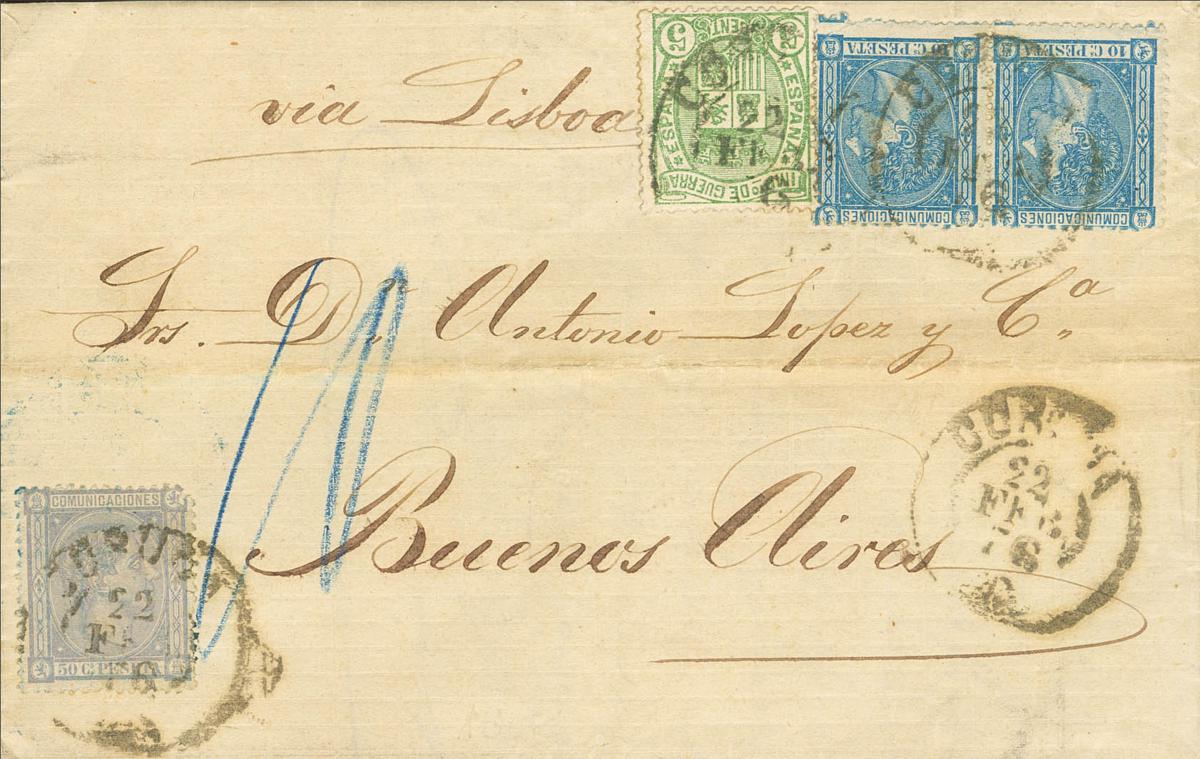 via Lisboa
5 CENT 5
ESPAÑA ESPAÑA
IMPº DE GUERRA
10 C. PESETA
COMUNICACIONES
10 C. PESETA
COMUNICACIONES
22
Srs. Dn Antonio Lopez y Cª
Buenos Aires
CORUÑA
22
FEB
COMUNICACIONES
CORUÑA
22
50 C. PESETA